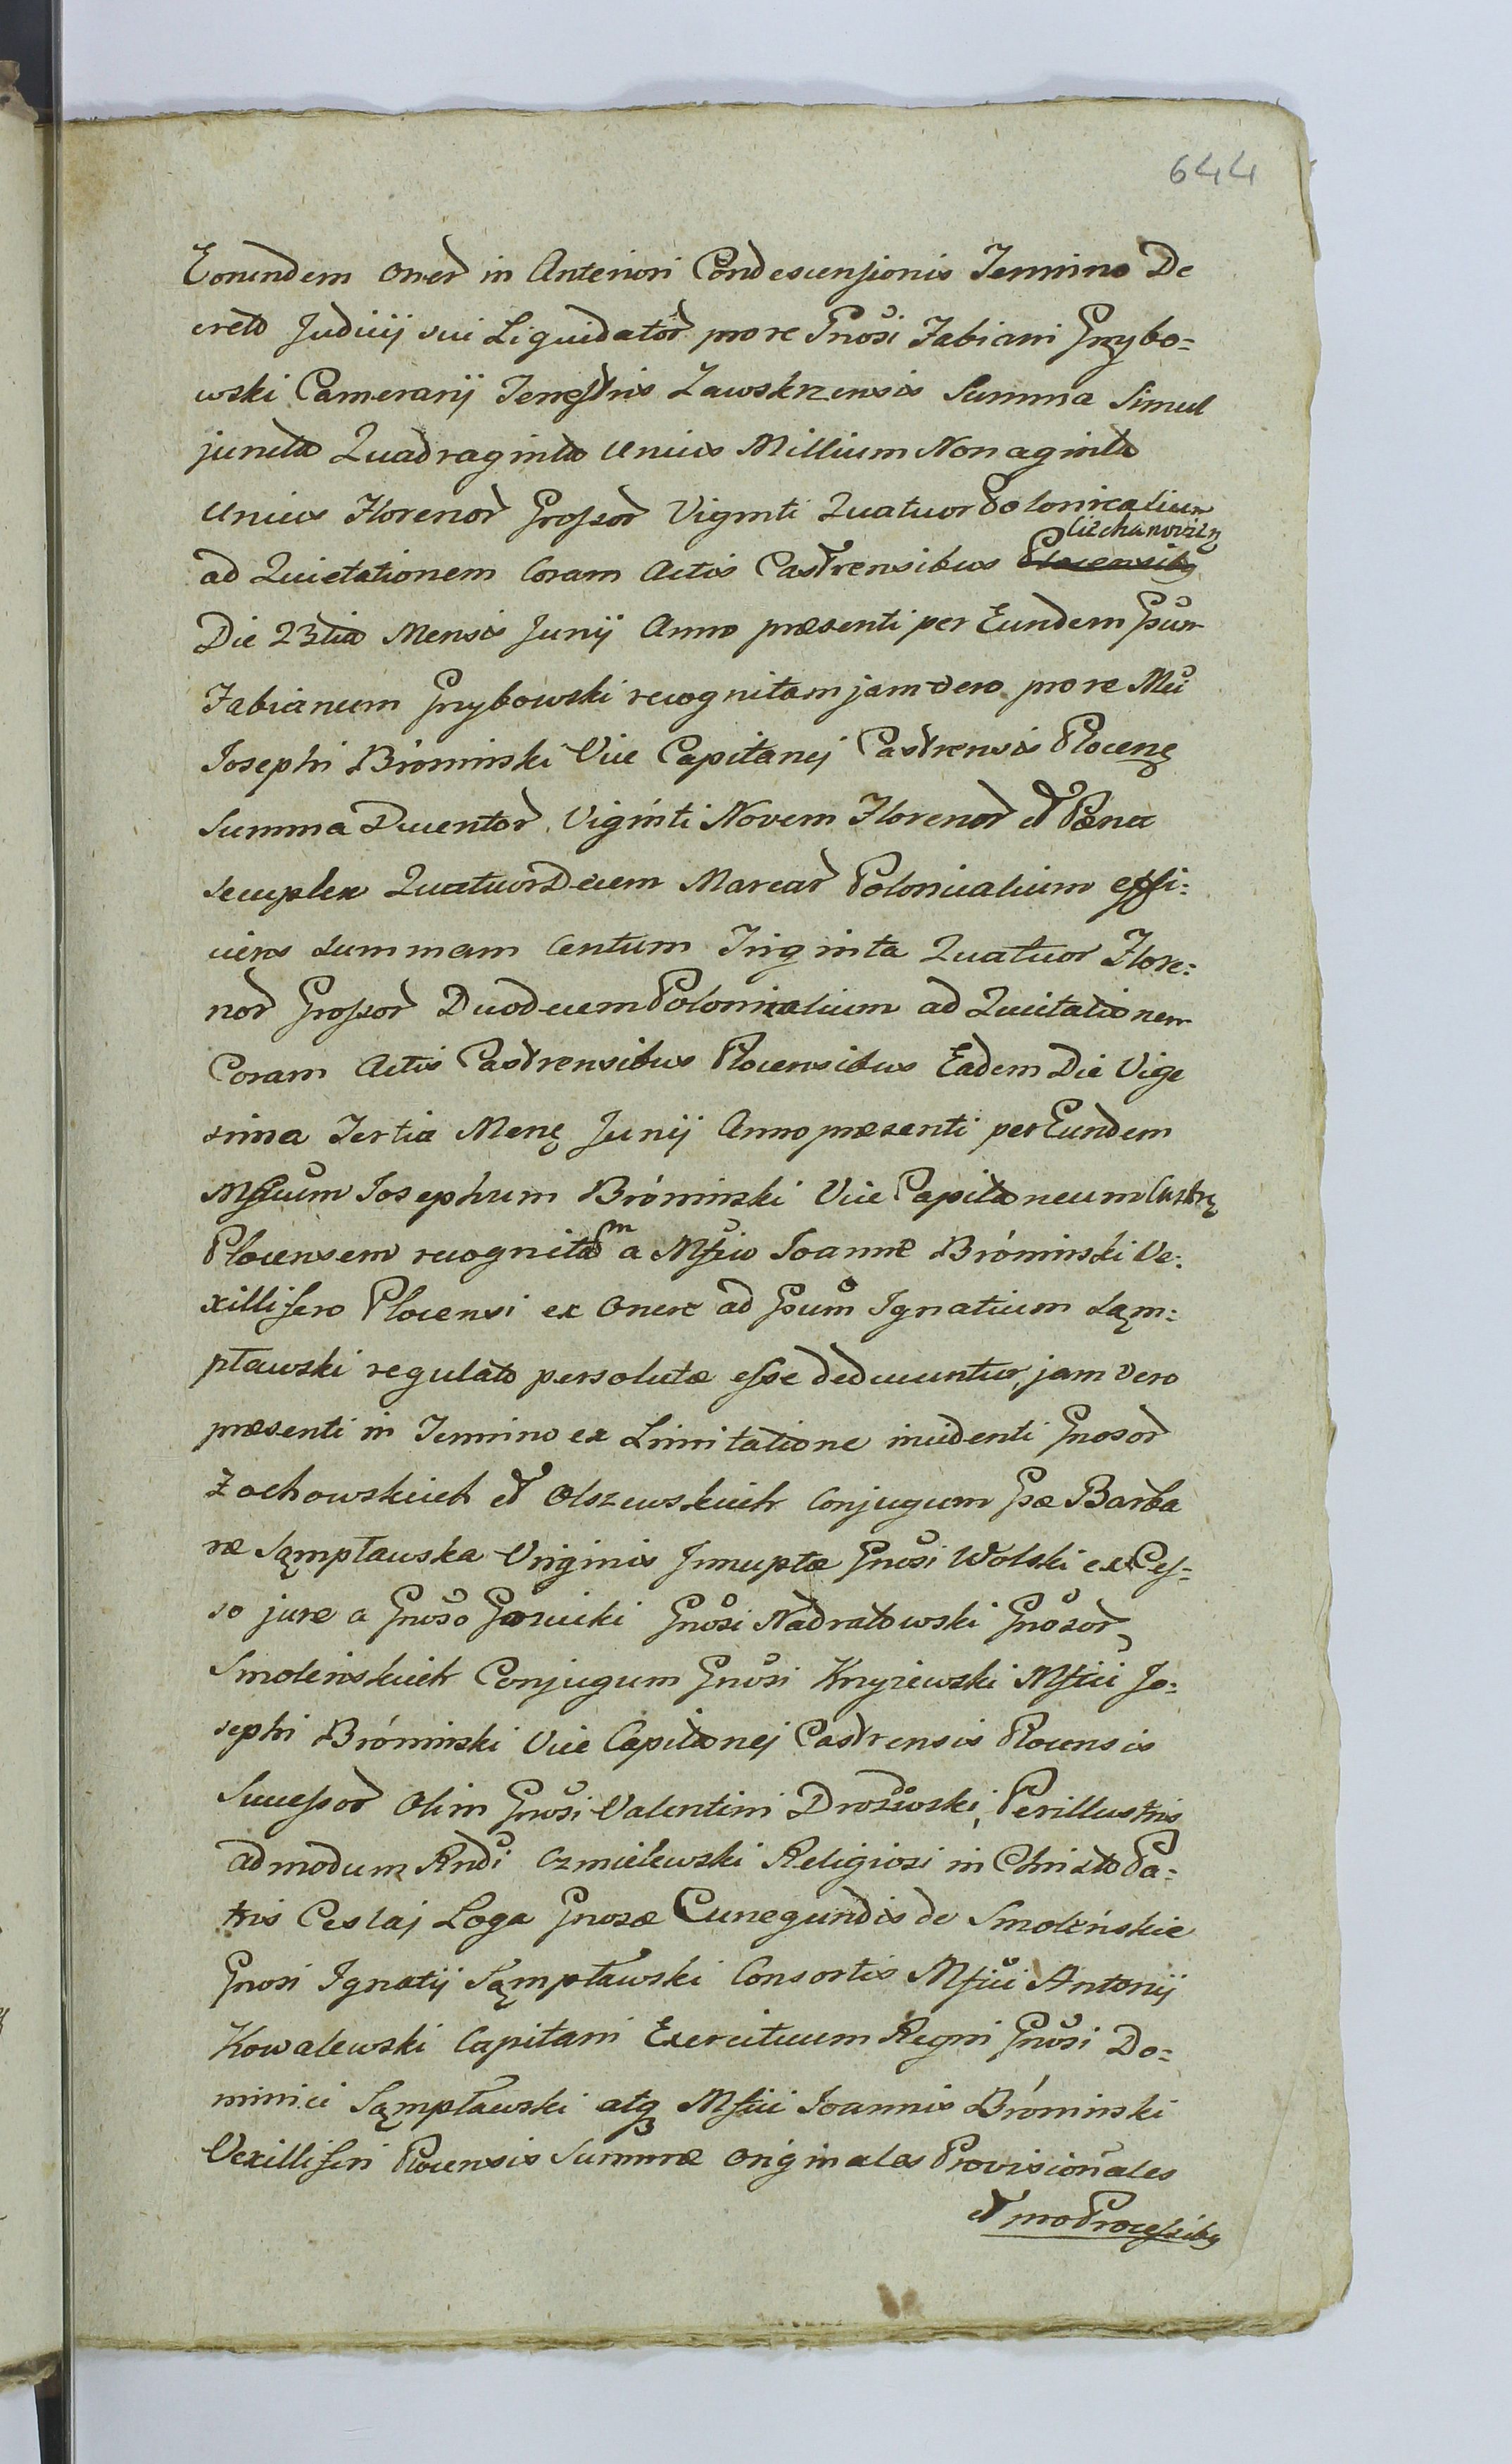 644
Eorundem Oner in Anteriori Condescensionis Termino De
creto Judicij sui Liquidator pro re Gnosi Fabiani Grzybo=
wski Camerarij Terrestris Zawskrzensis Summa Simul
juncta Quadraginta Unius Millium Nonaginta
Unius Florenor Grossor Viginti Quatuor Polonicalium
Ciechanovien
ad Quietationem Coram Actis Castrensibus Plocensibg
Die 23tia Mensis Junij Anno præsenti per Eundem Gsum
Fabianum Grzybowski recognitam jam vero pro re Mci
Josephi Bróminski Vice Capitanej Castrensis Plocens
Summa Ducentor Viginti Novem Florenor et Pæna
secuplex QuatuorDecem Marcar Polonicalium effi=
ciens summam Centum Triginta Quatuor Flore=
nor Grossor Duodecem Polonicalium ad Quitationem
Coram Actis Castrensibus Plocensibus Eadem Die Vige
sima Tertia Mens Junij Anno præsenti per Eundem
Mficum Josephum Bróminski Vice Capitaneum Castr
Plocensem recognitam a Mfico Joanne Bróminski Ve=
xillifero Plocensi ex Onere ad Gsum Ignatium Sąm=
pławski regulato persolutæ esse deducuntur, jam vero
præsenti in Termino ex Limitatione incidenti Gnosor
Zochowskich et Olszewskich Conjugum Gsæ Barba
ræ Sąmpławska Virginis Innuptæ Gnosi Wolski ex Ces=
so jure a Gnoso Gozicki Gnosi Nadratowski Gnosor
Smoleńskich Conjugum Gnosi Knyżewski Mfici Jo=
sephi Bróminski Vice Capitanej Castrensis Plocensis
Successor Olim Gnosi Valentini Drozewski, Perillustris
admodum Rndi Czmielewski Religiosi in Christo Pa=
tris Ceslaj Loga Gnosæ Cunegundis de Smoleńskie
Gnosi Ignatij Sąmpławski Consortis Mfici Antonij
Kowalewski Capitani Exercituum Regni Gnosi Do=
minici Sąmpławski atq Mfici Joannis Bróminski
Vexilliferi Plocensis Summæ Originales Provisionales
et pro Processibg